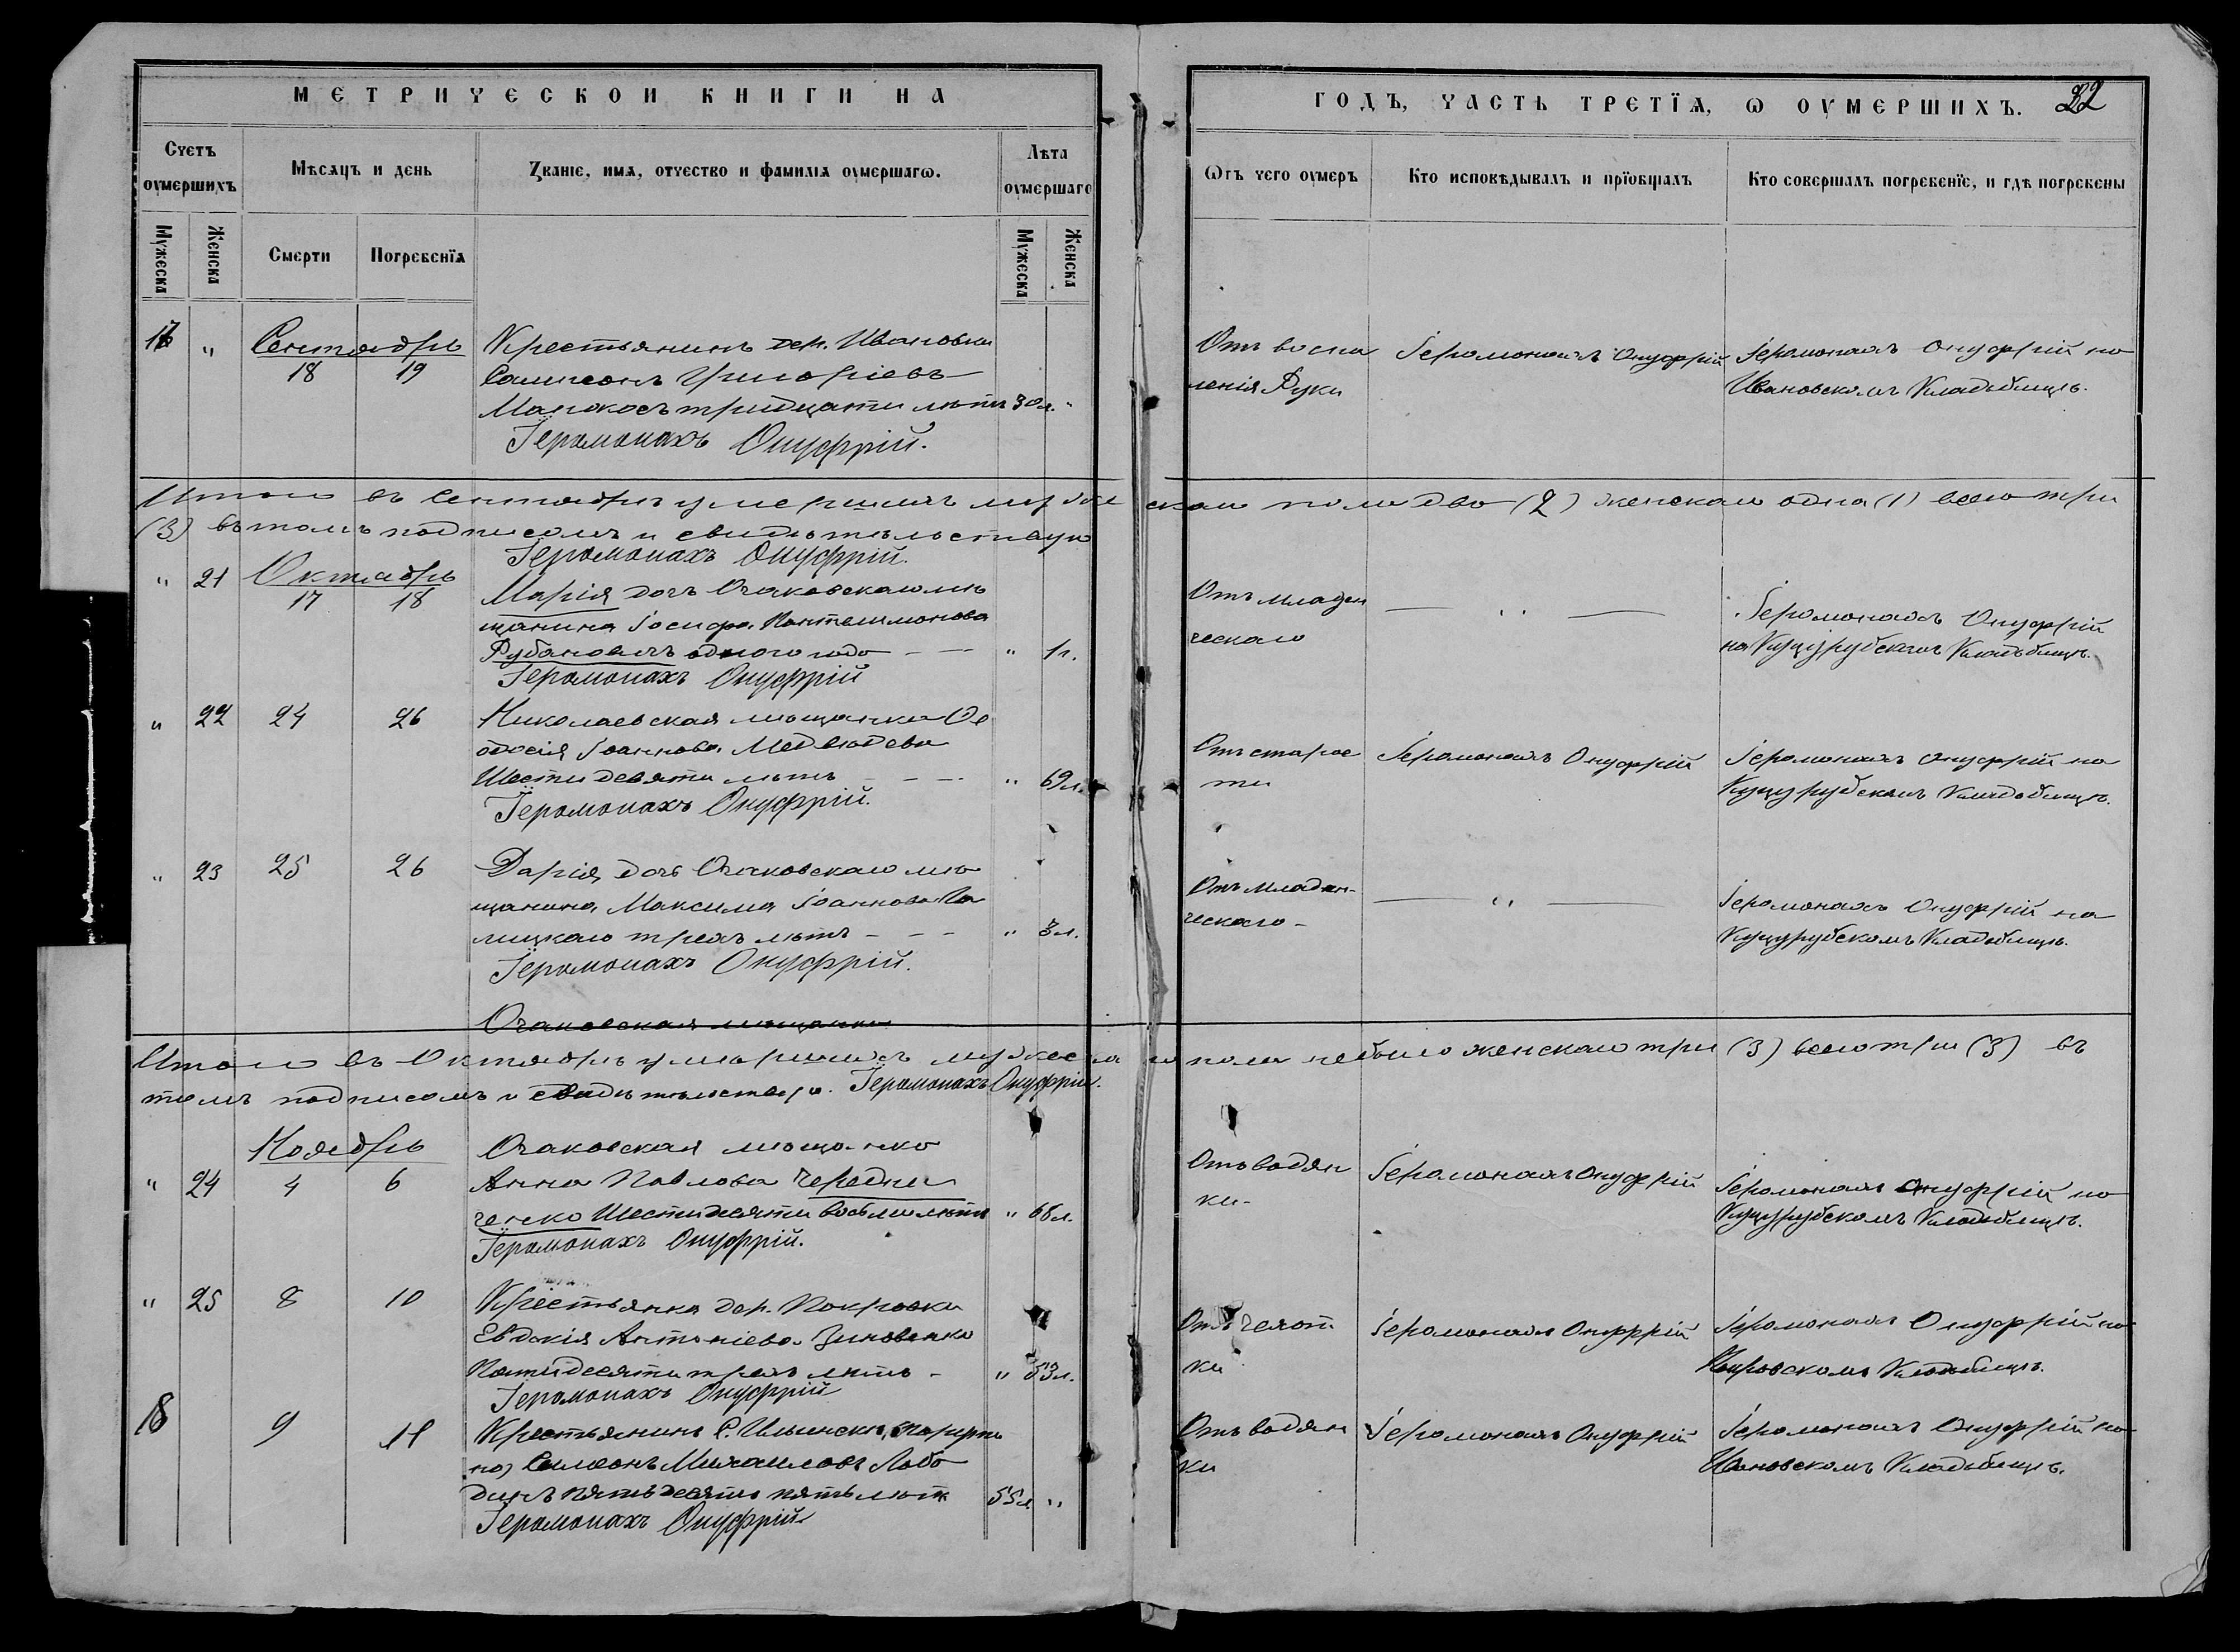 МЕТРИЧЕСКОЙ КНИГИ НА
ГОДЪ, ЧАСТЬ ТРЕТЇѦ, Ѡ ОУМЕРШИХЪ. 22
Счетъ оумершихъ
Мѣсѧцъ и день
Званіе, имѧ, отчество и фамилїѧ оумершагѡ.
Лѣта оумершаго
Ѿ чего оумеръ
Кто исповѣдывалъ и прїобщалъ
Кто совершалъ погребенїе, и гдѣ погребены
Мужеска
Женска
Смерти
Погребенїѧ
Мужеска
Женска
17 " Сентябрь
18 19
Крестьянинъ дер. Ивановки
Сампсонъ Григоріевъ
тридцати лѣтъ 30 л. "
Іеромонахъ Онуфрій.
Отъ воспа
ленія Руки
Іеромонахъ Онуфрій
Іеромонахъ Онуфрій на
Ивановскомъ Кладбищѣ.
Итого въ Сентябрѣ умершихъ мужескаго пола два (2) женскаго одна (1) всего три
(3) въ томъ подписомъ и свидѣтельствую
Іеромонахъ Онуфрій.
" 21 Октябрь
17 18
Марія дочь Очаковскаго мѣ
щанина Іосифа Пантелимонова
Рубановичъ одного года — — " 1 г.
Іеромонахъ Онуфрій
Отъ младен
ческаго
— " —
Іеромонахъ Онуфрій
на Куцурубскомъ Кладбищѣ.
" 22 24 26
Николаевская мѣщанка Ѳе
одосія Іоаннова Медведева
Шестидевяти лѣтъ — — — " 69 л.
Іеромонахъ Онуфрій.
Отъ старос
ти
Іеромонахъ Онуфрій
Іеромонахъ Онуфрій на
Куцурубскомъ Кладбищѣ.
" 23 25 26
Дарія дочь Очаковскаго мѣ
щанина Максима Іоаннова Га
лицкаго трехъ лѣтъ — — — " 3 л.
Іеромонахъ Онуфрій.
Отъ младен-
ческаго —
— " —
Іеромонахъ Онуфрій на
Куцурубскомъ Кладбищѣ.
Очаковская мѣщанка
Итого въ Октябрѣ умершихъ мужескаго пола небыло женскаго три (3) всего три (3) въ
томъ подписомъ и свидѣтельствую. Іеромонахъ Онуфрій.
Ноябрь
" 24 4 6
Очаковская мѣщанка
Анна Павлова Чередни
ченко Шестидесяти восьми лѣтъ " 68 л.
Іеромонахъ Онуфрій.
Отъ водян
ки-
Іеромонахъ Онуфрій
Іеромонахъ Онуфрій на
Куцурубскомъ Кладбищѣ.
" 25 8 10
Крестьянка дер. Покровки
Евдокія Антоніева Зиновенко
Пятидесяти трехъ лѣтъ — " 53 л.
Іеромонахъ Онуфрій
Отъ чехот
ки
Іеромонахъ Онуфрій
Іеромонахъ Онуфрій на
Покровскомъ Кладбищѣ.
18 9 11
Крестьянинъ С. Ильински,
Симеонъ Михаиловъ Лобо
пятьдесятъ пять лѣтъ 55 л. "
Іеромонахъ Онуфрій
Отъ водян
ки
Іеромонахъ Онуфрій
Іеромонахъ Онуфрій на
Ивановскомъ Кладбищѣ.